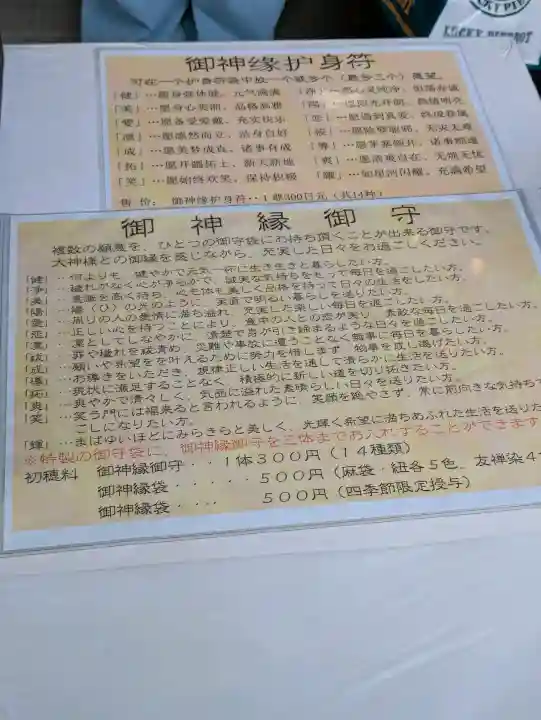 LUCKY PIERROT
御神缘护身符
可在一个护身符袋中放一个或多个（最多三个）愿望。
「健」…愿身强体健、元气满满
「美」…愿身心美丽、品格高雅
「愛」…愿备受爱戴、充实快乐
「凛」…愿凛然而立、洁身自好
「成」…愿美梦成真、诸事有成
「拓」…愿开疆拓土、新天新地
「笑」…愿始终欢笑、保持积极
售价： 御神缘护身符・・1尊300日元（共14种）
御神縁御守
複数の願意を、ひとつの御守袋にお持ち頂くことが出来る御守です。
大神様との御縁を感じながら、充実した日々をお過ごしください。
「健」…何よりも、健やかで元気一杯に生き生きと暮らしたい方。
「浄」…穢れがなく心が浄らかで、誠実な気持ちをもって毎日を過ごしたい方。
「美」…意識を高く持ち、心も体も美しく品格を持って日々の生活をしたい方。
「陽」…陽（ひ）の光のように、素直で明るい暮らしを送りたい方。
「愛」…周りの人の愛情に満ち溢れ、充実した楽しい毎日を過ごしたい方。
「恋」…正しい心を持つことにより、意中の人との恋が実り、素敵な毎日を過ごしたい方。
「凛」…凛としてしなやかに、清楚で身が引き締まるような日々を過ごしたい方。
「祓」…罪や穢れを祓清め、災難や事故に遭うことなく無事に毎日を暮らしたい方。
「成」…願いや希望をを叶えるために努力を惜しまず、物事を成し遂げたい方。
「導」…お導きをいただき、規律正しい生活を通して清らかに生活を送りたい方。
「拓」…現状に満足することなく、積極的に新しい道を切り拓きたい方。
「爽」…爽やかで清々しく、気品に溢れた素晴らしい日々を送りたい方。
「笑」…笑う門には福来ると言われるように、笑顔を絶やさず、常に前向きな気持ちで
こしになりたい方。
「輝」…まばゆいほどにみらきらと美しく、光輝く希望に満ちあふれた生活を送りた
※特製の御守袋に、御神縁御守を三体までお入れすることができます
初穂料 御神縁御守・・・1体300円（14種類）
御神縁袋・・・・・・500円（麻袋・紐各5色、友禅染4
御神縁袋・・・・ 500円（四季節限定授与）